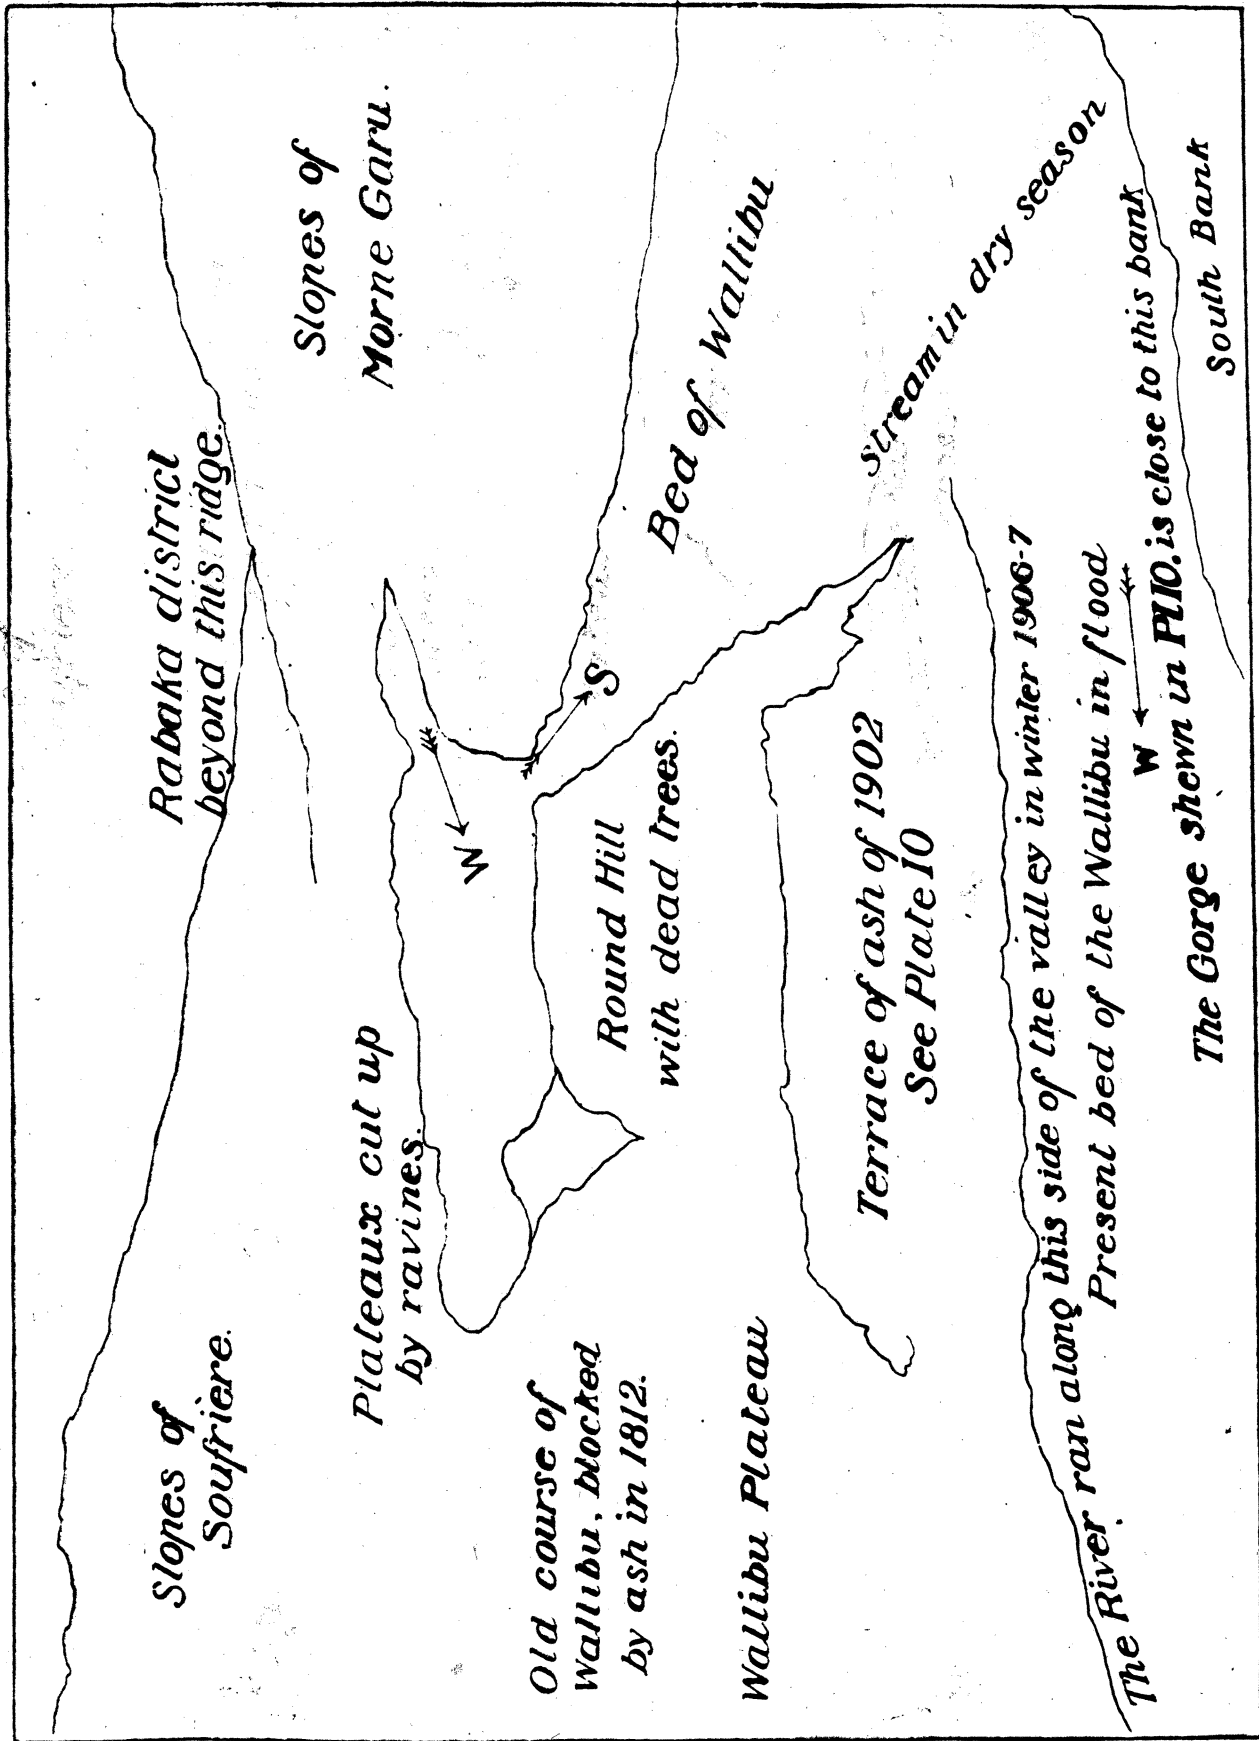 Slopes of
Soufrière.
Rabaka district
beyond this ridge.
Slopes of
Morne Garu.
Plateaux cut up
by ravines.
W
S
Old course of
Wallibu, blocked
by ash in 1812.
Round Hill
with dead trees.
Bed of Wallibu
Wallibu Plateau
Terrace of ash of 1902
See Plate 10
Stream in dry season
The River ran along this side of the valley in winter 1906-7
Present bed of the Wallibu in flood
W
The Gorge shewn in Pl 10. is close to this bank
South Bank